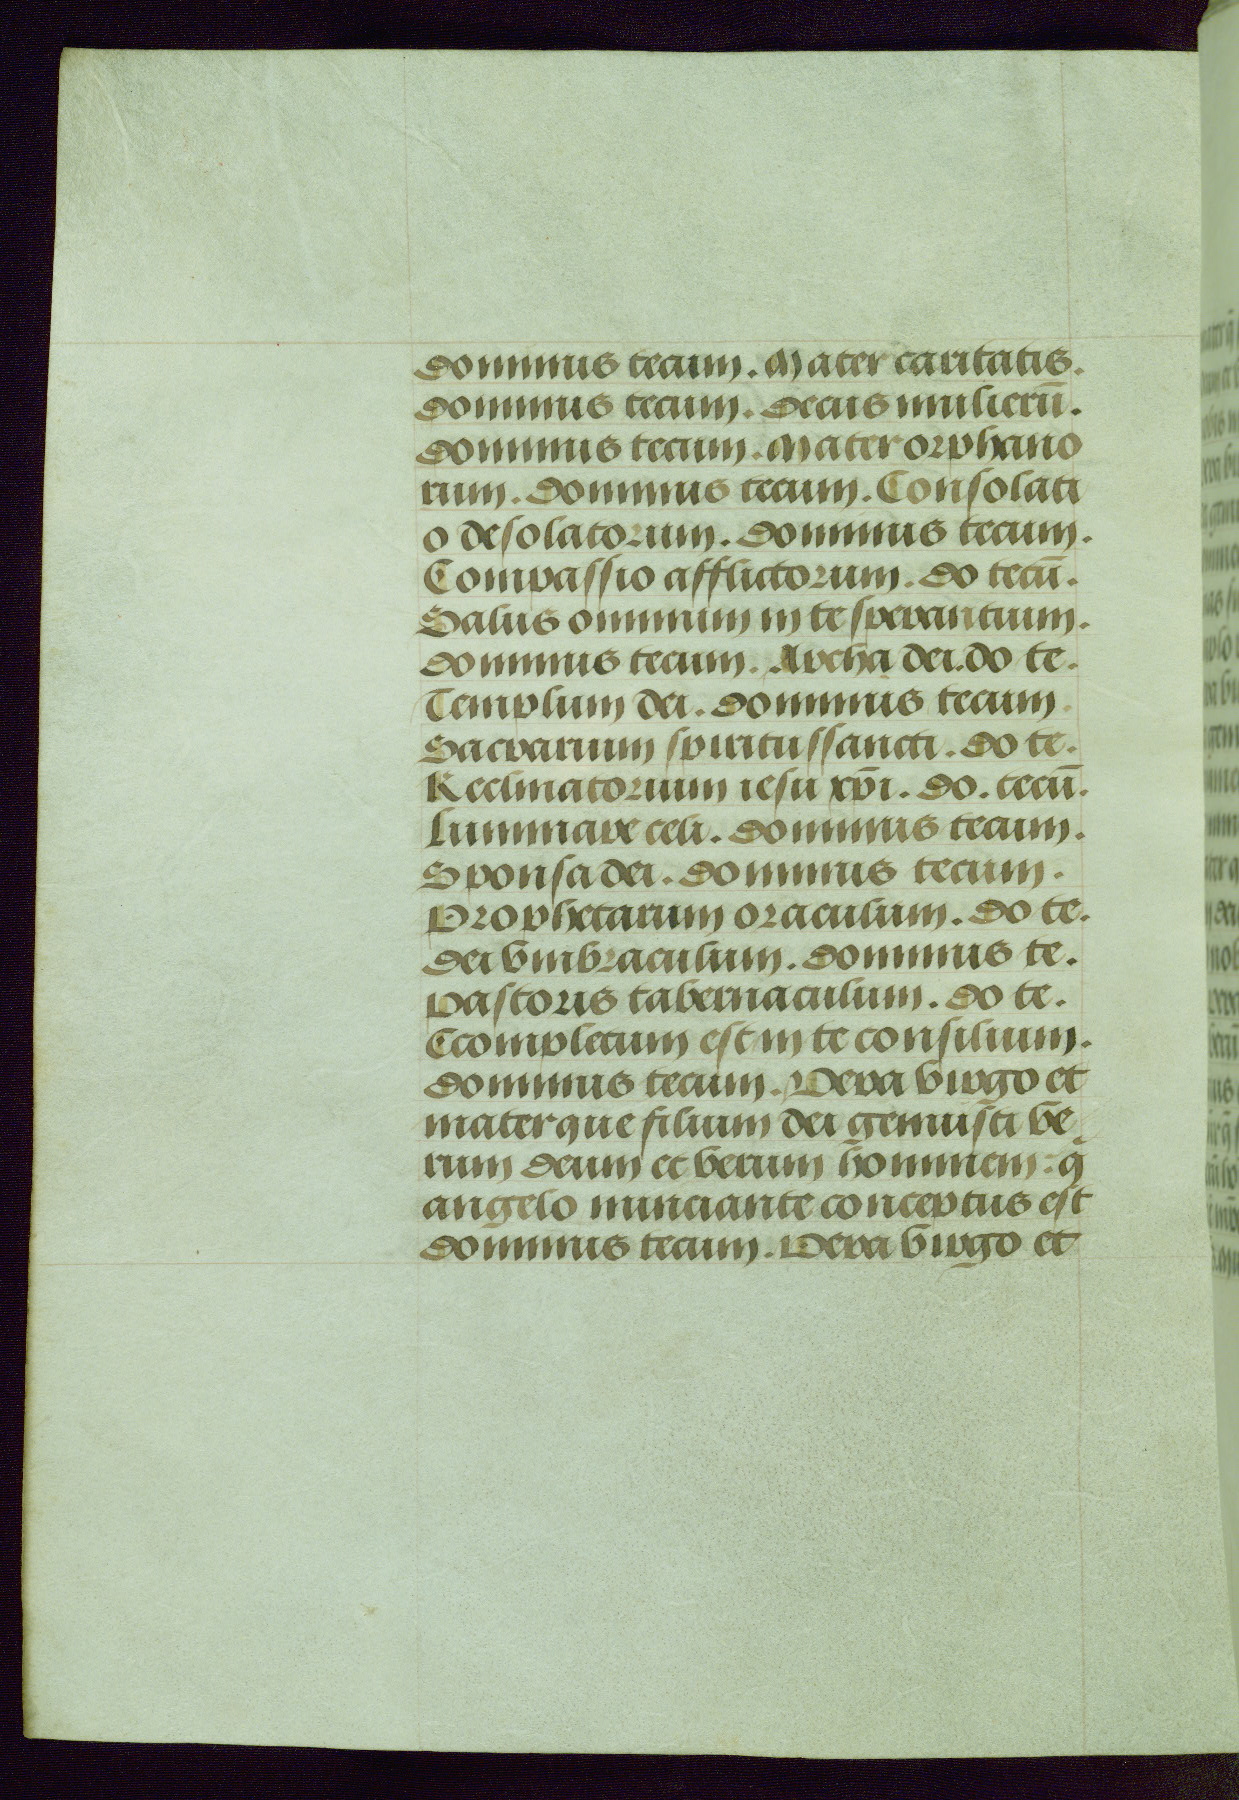 dominus tecum. Mater caritatis.
dominus tecum. decus mulierū.
dominus tecum. Mater orphano
rum. dominus tecum. Consolati
o desolatorum. dominus tecum.
Compassio afflictorum. do tecū.
Salus omnium in te sperantium.
dominus tecum. Archa dei. do te.
Templum dei. dominus tecum.
Sacrarium spiritussancti. do te.
Reclinatorium iesu xp̄i. do. tecū.
luminare celi. dominus tecum.
Sponsa dei. dominus tecum.
Prophetarum oraculum. do te.
dei vmbraculum. dominus te.
pastoris tabernaculum. do te.
Ccompletum est in te consilium.
dominus tecum. Vera virgo et
materque filium dei genuisti ve
rum deum et verum hominem: q̄
angelo nunciante conceptus est
dominus tecum. Vera virgo et